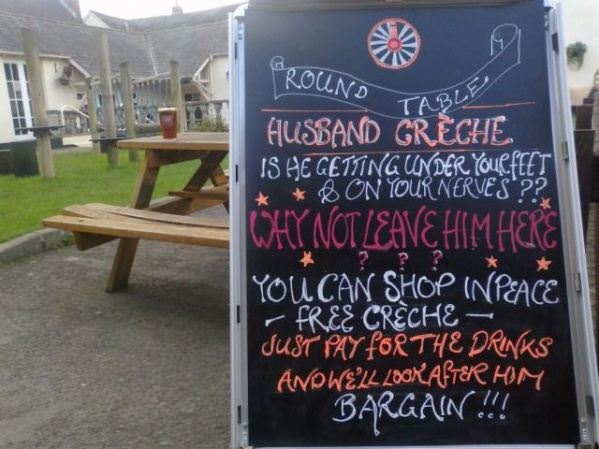 ROUND TABLE
HUSBAND CRÈCHE
IS HE GETTING UNDER YOUR FEET
& ON YOUR NERVES ??
WHY NOT LEAVE HIM HERE
? ? ?
YOU CAN SHOP IN PEACE
- FREE CRÈCHE -
JUST PAY FOR THE DRINKS
AND WE'LL LOOK AFTER HIM
BARGAIN !!!